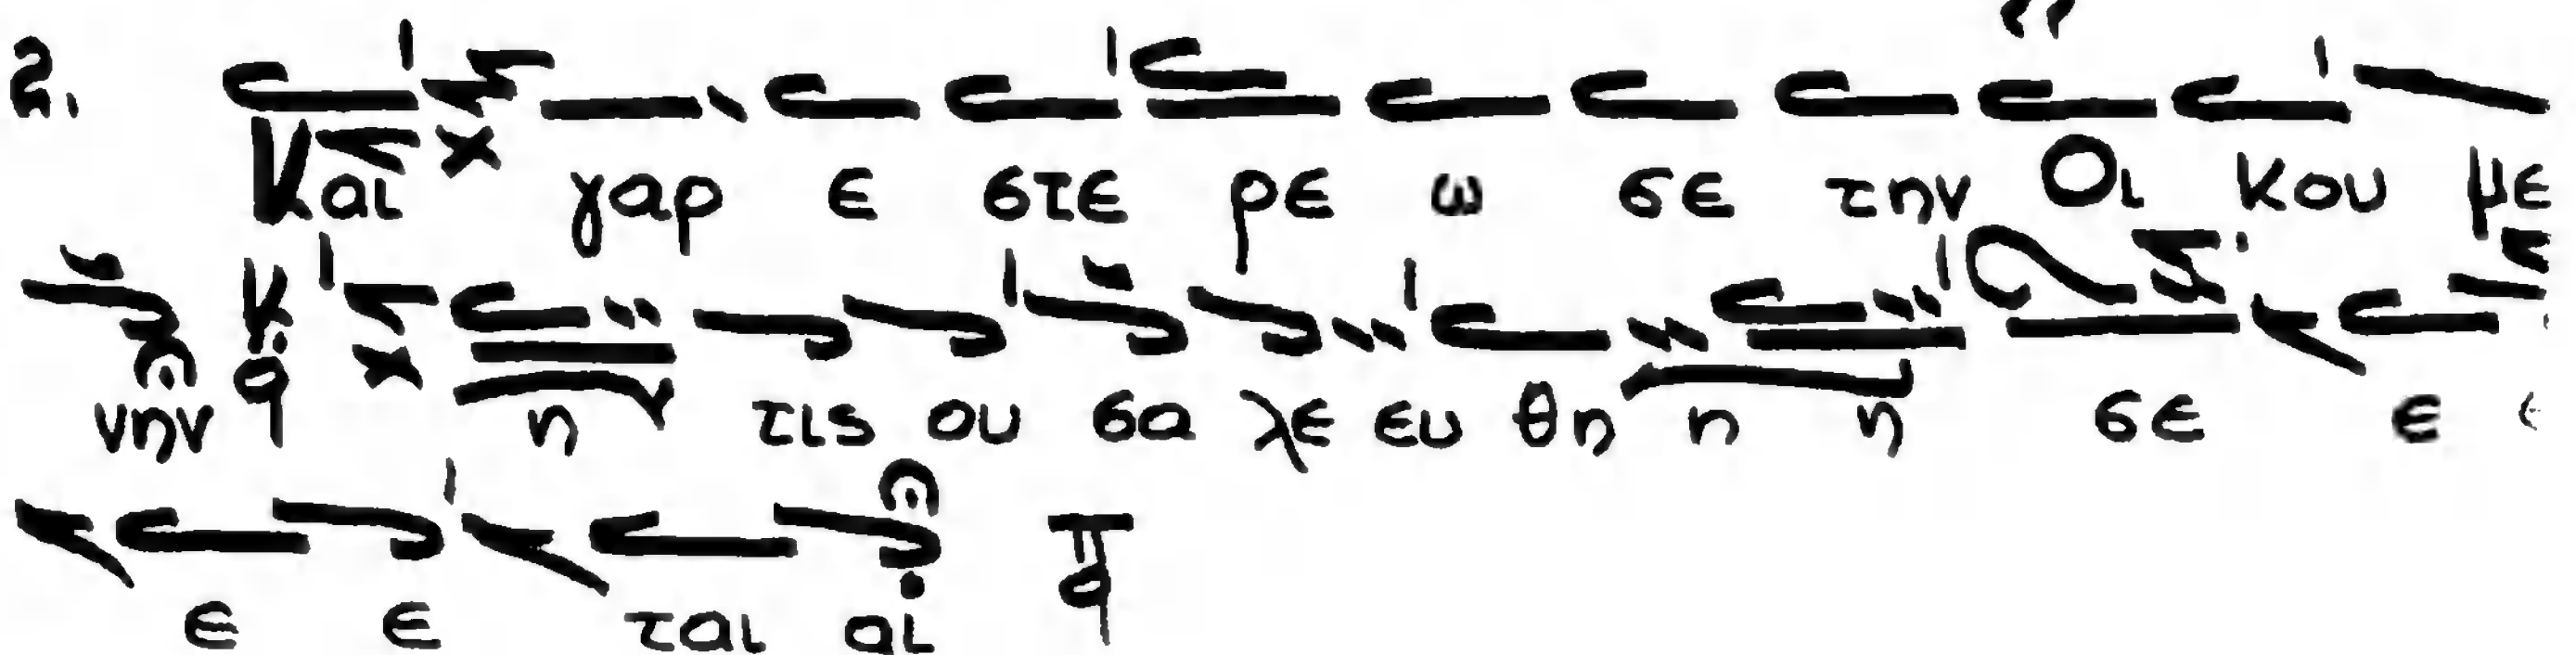 2. Και γαρ ε στε ρε ω σε την Οι κου με
νην η τις ου σα λε ευ θη η η σε ε
ε ε ται αι